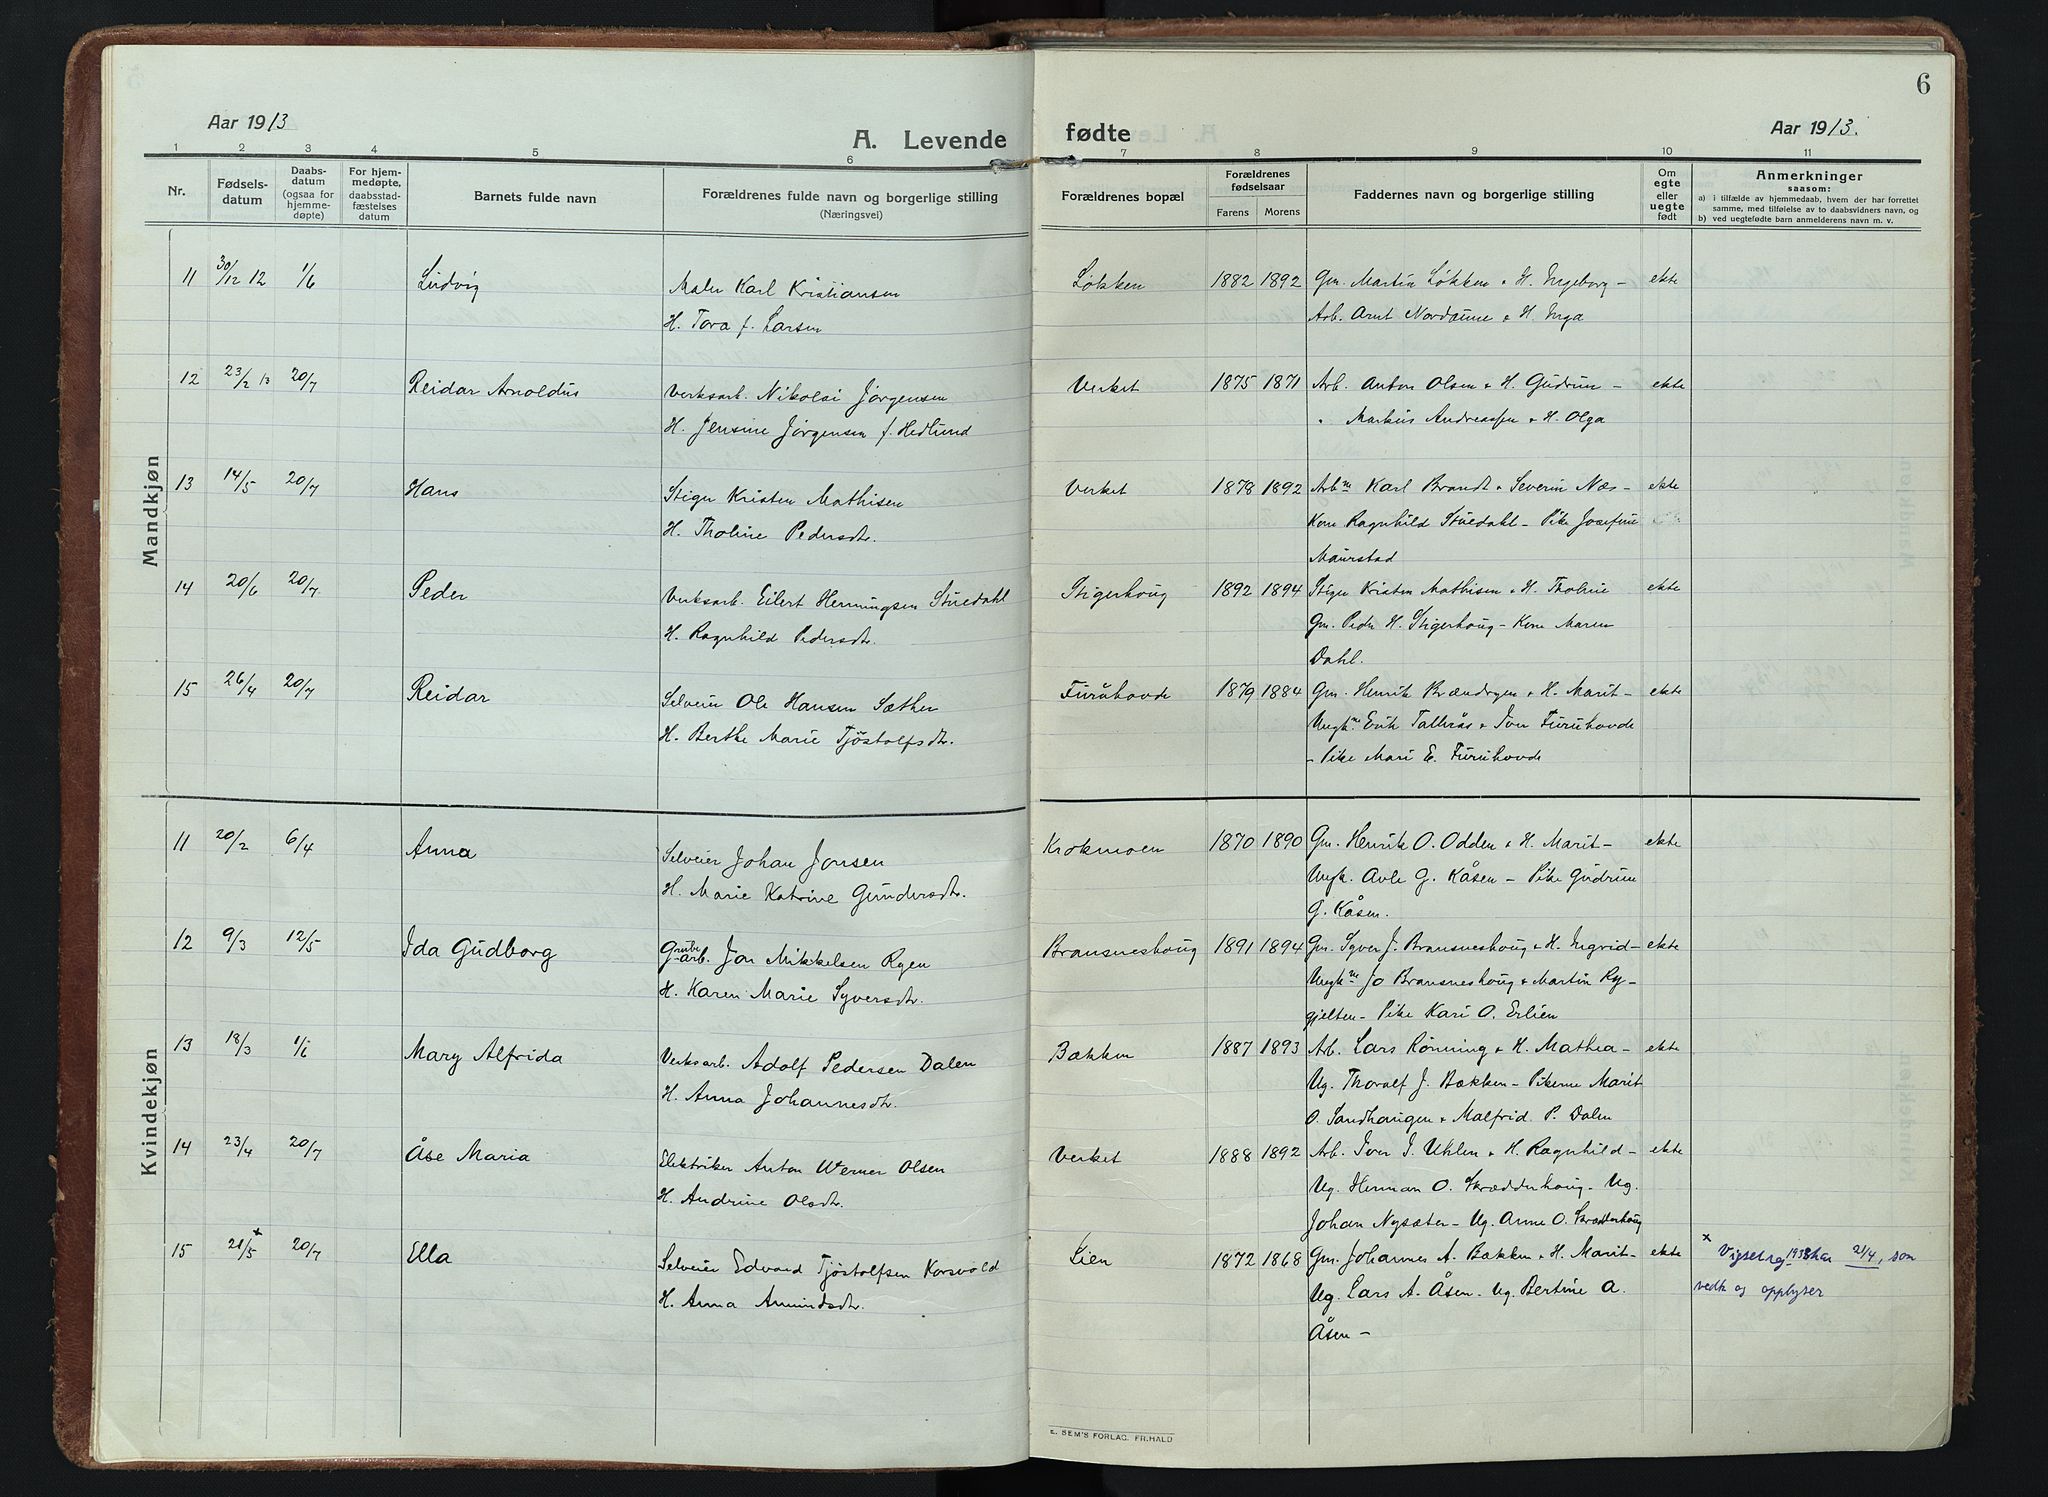 6
Aar 1913
A. Levende fødte
Aar 1913.
1 2 3 4 5 6 7 8 9 10 11
Nr.
Fødsels-
datum
Daabs-
datum
(ogsaa for
hjemme-
døpte)
For hjem-
medøpte,
daabsstad-
fæstelses
datum
Barnets fulde navn
Forældrenes fulde navn og borgerlige stilling
(Næringsvei)
Forældrenes bopæl
Forældrenes
fødselsaar
Farens Morens
Faddernes navn og borgerlige stilling
Om
egte
eller
uegte
født
Anmerkninger
saasom:
a) i tilfælde av hjemmedaab, hvem der har forrettet
samme, med tilføielse av to daabsvidners navn, og
b) ved uegtefødte barn anmelderens navn m. v.
Mandkjøn
11 30/12 12 1/6 Ludvig Maler Karl Kristiansen Løkken 1882 1892 Gm. Martin Løkken & H. Ingeborg – ekte
H. Tora f. Larsen Arb. Arnt Nordaune & H. Inga
12 23/2 13 20/7 Reidar Arnoldus Verksarb. Nikolai Jørgensen Verket 1875 1871 Arb. Anton Olsen & H. Gudrun – ekte
H. Jensine Jørgensen f. Hedlund " Markus Andreassen & H. Olga
13 14/5 20/7 Hans Stiger Kristen Mathisen Verket 1878 1892 Arbm Karl Brandt & Severin Næs – ekte
H. Tholine Pedersdtr. Kone Ragnhild Stuedahl – Pike Josefine
Maurstad
14 20/6 20/7 Peder Verksarb. Eilert Henningsen Stuedahl Stigerhoug 1892 1894 Stiger Kristen Mathisen & H. Tholine ekte
H. Ragnhild Pedersdtr. Gm. Peder H. Stigerhoug – Kone Maren
Dahl.
15 26/4 20/7 Reidar Selveier Ole Hansen Sæther Furuhovde 1879 1884 Gm. Henrik Brændryen & H. Marit – ekte
H. Berthe Marie Tjøstolfsdtr. Ungkm. Erik Tallerås & Iver Furuhovde
– Pike Mari E. Furuhovde
Kvindekjøn
11 20/2 6/4 Anna Selveier Johan Jonsen Krokmoen 1870 1890 Gm. Henrik O. Odden & H. Marit – ekte
H. Marie Katrine Gundersdtr. Ungk. Avle G. Kåsen – Pike Gudrun
G. Kåsen.
12 9/3 12/5 Ida Gudborg Grubearb. Jon Mikkelsen Ryen Bransneshoug 1891 1894 Gm. Syver J. Bransneshoug & H. Ingrid – ekte
H. Karen Marie Syversdtr. Ungkm Jo Bransneshoug & Martin Ry-
gjelten – Pike Kari O. Erlien
13 18/3 1/6 Mary Alfrida Verksarb. Adolf Pedersen Dalen Bækken 1887 1893 Arb. Lars Rønning & H. Mathea – ekte
H. Anna Johannesdtr. Ug. Thoralf J. Bækken – Pikerne Marit
O. Sandhaugen & Malfrid. P. Dalen
14 23/4 20/7 Åse Maria Elektriker Anton Werner Olsen Verket 1888 1892 Arb. Iver I. Uhlen & H. Ragnhild – ekte
H. Andrine Olsdtr. Ug. Herman O. Skrædderhoug – Ug.
Johan Nysæter – Ug. Anne O. Skrædderhoug
15 21/5 x 20/7 Ella Selveier Edvard Tjøstolfsen Korsvold Lien 1872 1868 Gm. Johannes A. Bækken & H. Marit – ekte x Vigselreg 1938 har 21/4, som
H. Anna Amundsdtr. Ug. Lars A. Åsen – Ug. Bertine A. vedk og opplyser
Åsen –
E. SEM'S FORLAG. FR.HALD